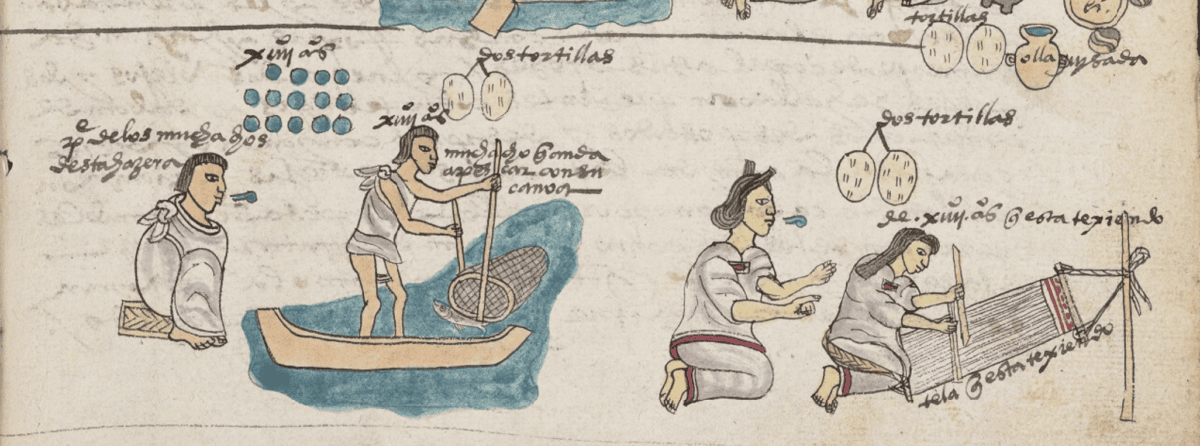 tortillas
olla
xiiij aºs
dos tortillas
pe. de los muchachos
desta hazera
xiiij aºs
muchacho q anda
a pescar con su
canoa
dos tortillas
de .xiiij. aºs q esta texiendo
tela q esta texiendo